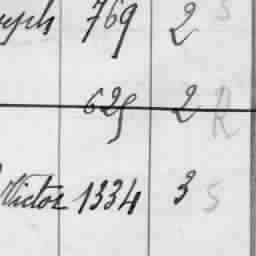 769 2 S
625 2 R
Victor 1334 3 S